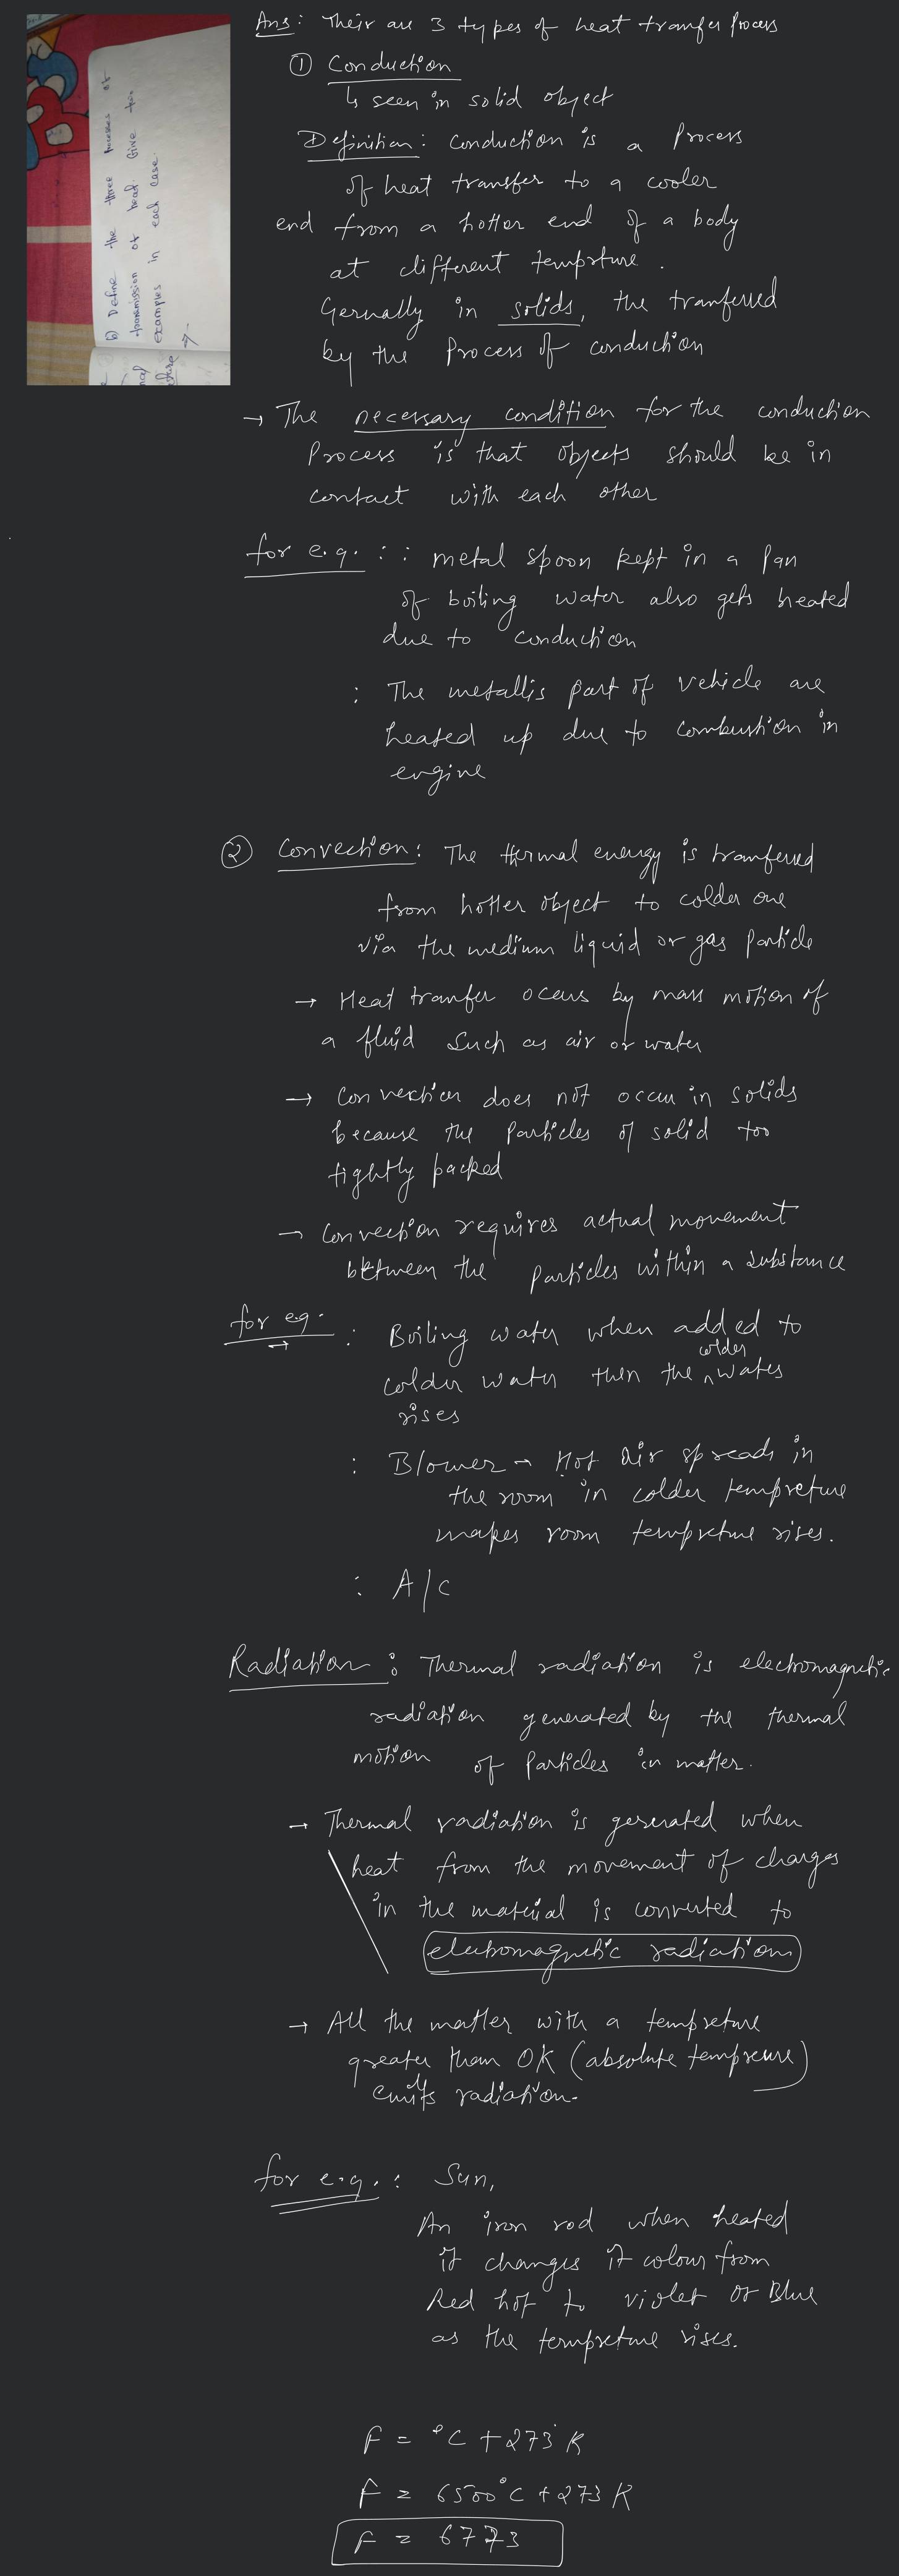 b) Define the three processes of
transmission of heat. Give two
examples in each case.
Ans: Their are 3 types of heat tranfer process
① Conduction
↳ seen in solid object
Definition: conduction is a Process
of heat transfer to a cooler
end from a hotter end of a body
at different temprture.
Gernally in solids, the tranferred
by the Process of conduction
→ The necessary condition for the conduction
Process is that objects should be in
contact with each other
for e.g. : : metal spoon kept in a pan
of boiling water also gets heated
due to conduction
: The metallis part of vehicle are
heated up due to combustion in
engine
② Convection: The thermal energy is tranferred
from hotter object to colder one
via the medium liquid or gas particle
→ Heat tranfer occurs by mass motion of
a fluid such as air or water
→ Convection does not occur in solids
because the particles of solid too
tightly packed
→ Convection requires actual movement
between the particles within a substance
for eg. : Boiling water when added to
colder water then the colder water
rises
: Blower → Hot air spreads in
the room in colder tempreture
makes room tempretme rises.
: A/C
Radiation : Thermal radiation is electromagnetic
radiation generated by the thermal
motion of particles in matter.
→ Thermal radiation is generated when
heat from the movement of charges
in the material is converted to
electromagnetic radiations
→ All the matter with a tempreture
greater than 0K (absolute tempreure)
emits radiation.
for e.g. : Sun,
An iron rod when heated
it changes it colour from
Red hot to violet or Blue
as the tempretme rises.
F = °C + 273 K
F = 6500°C + 273 K
F = 6773